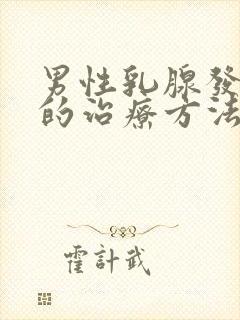 男性乳腺發
的治療方法
霍計武